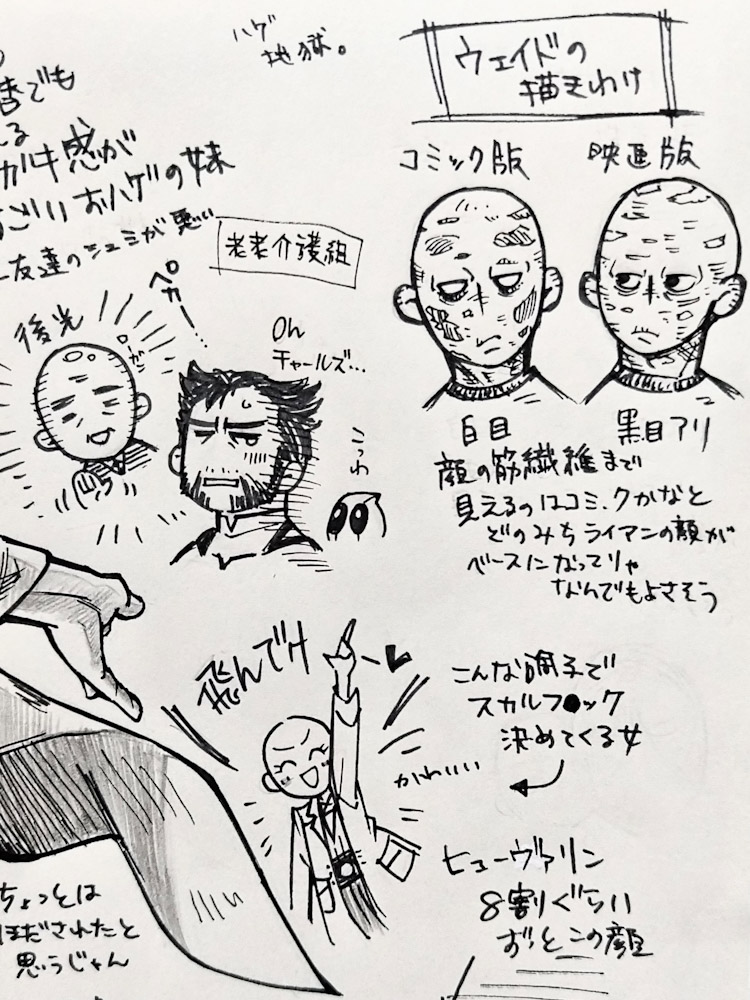 ハゲ
地獄。
ウェイドの
描きわけ
コミック版
映画版
でも
る
ガキ感が
ごいおハゲの妹
友達のシュミが悪い
老老介護組
ペカー
後光
ローガン
Oh
チャールズ…
こっわ
白目
黒目アリ
顔の筋繊維まで
見えるのはコミックかなと
どのみちライアンの顔が
ベースになってりゃ
なんでもよさそう
飛んでけ
こんな調子で
スカルフ●ック
決めてくる女
かわいい
ヒューヴァリン
8割ぐらい
ずっとこの顔
ちょっとは
ほだされたと
思うじゃん